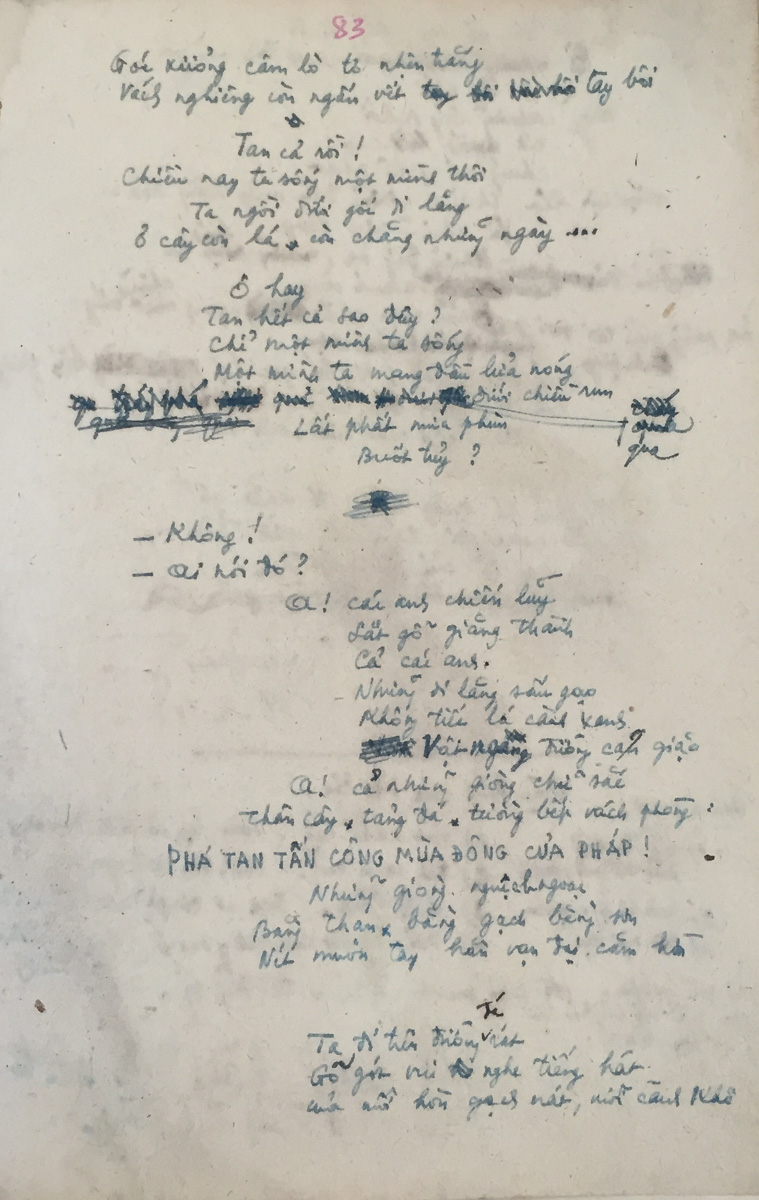 83
Gốc xưởng câm lò tê nhện trắng
Vách nghiêng còn ngấn vết tay bôi
Tan cả rồi!
Chiều nay ta sống một mình thôi
Ta ngồi dưới gốc di lăng
Ồ cây còn lá, còn chăng những ngày ...
Ô hay
Tan hết cả sao đây?
Chỉ một mình ta sống
Một mình ta mang đầu lửa nóng
qua dưới chiều run
Lất phất mưa phùn
Buốt tủy?
— Không!
— Ai nói đó?
A! các anh chiến lũy
Sắt gỗ giăng thành
Cả các anh.
Những di lăng sấu gạo
Không tiếc lá cành xanh
Vật ngang đường cản giặc
A! cả những giòng chữ sắc
Thân cây, tảng đá, tường bếp vách phòng:
PHÁ TAN TẤN CÔNG MÙA ĐÔNG CỦA PHÁP!
Những giòng nguệch ngoạc
Bằng than, bằng gạch bằng sơn
Nét muôn tay hằn vạn đại căm hờn
Ta đi trên đường rát
Gõ gót vui nghe tiếng hát
của mỗi hòn gạch nát, mỗi cành khô